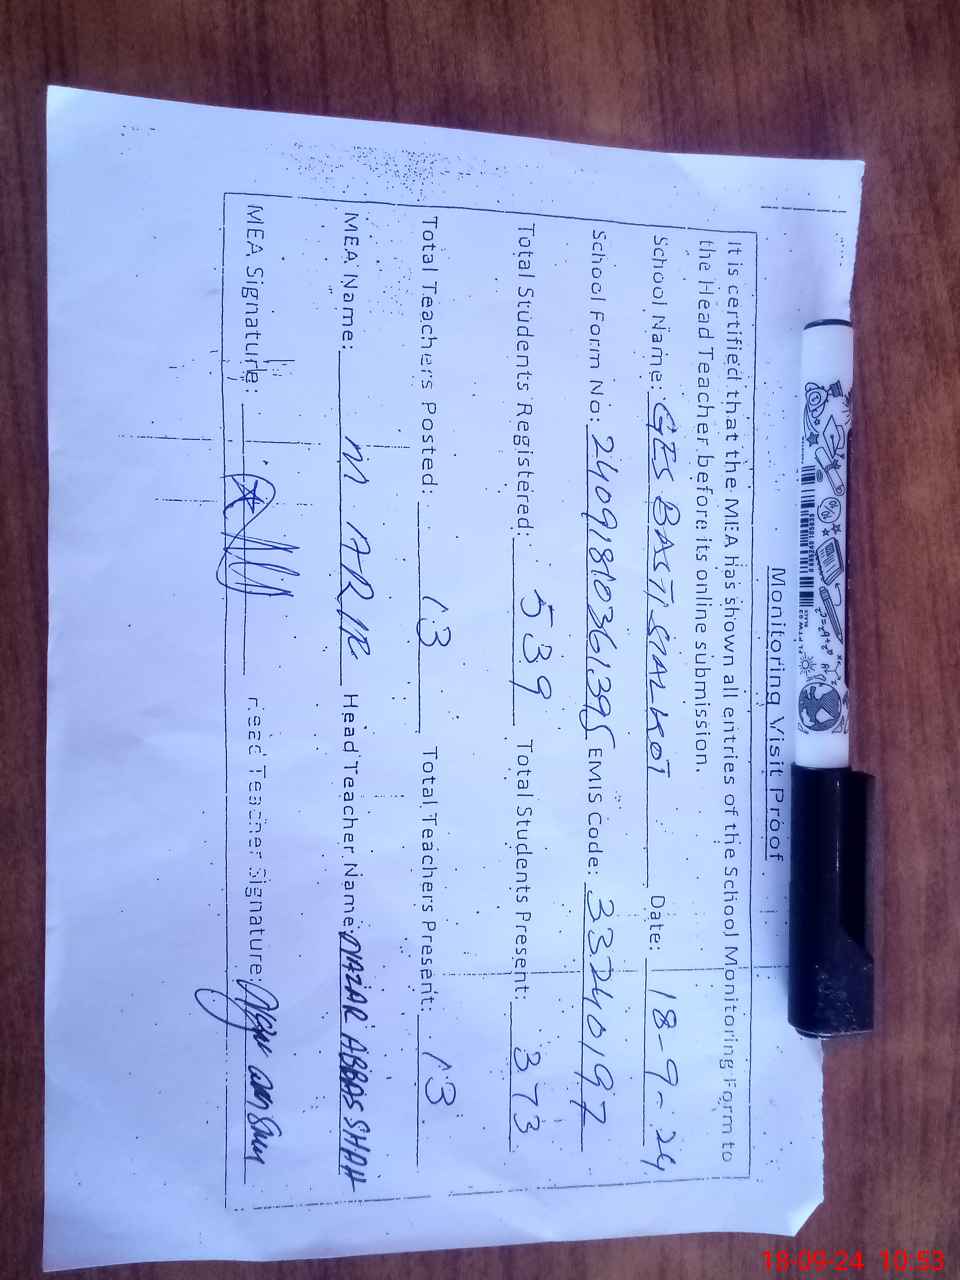 Monitoring Visit Proof
It is certified that the MEA has shown all entries of the School Monitoring Form to
the Head Teacher before its online submission.
School Name: GES BASTI SIALKOT Date: 18-9-24
School Form No: 24091810361395 EMIS Code: 33240197
Total Students Registered: 539 Total Students Present: 373
Total Teachers Posted: 13 Total Teachers Present: 13
MEA Name: M ARIF Head Teacher Name: NIAZAR ABBAS SHAH
MEA Signature: Head Teacher Signature:
18-09-24 10:53